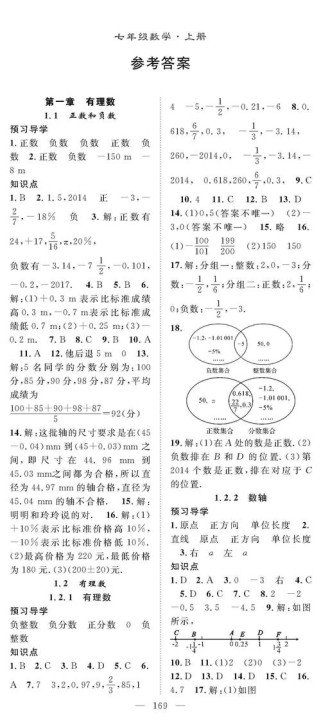 七年级数学·上册
参考答案
第一章 有理数
1.1 正数和负数
预习导学
1.正数 负数 负数 正数 负
数 2.正数 负数 —150 m —
8 m
知识点
1.B 2.1,5,2014 正 —3,—
2/7,—18% 负 3.解:正数有
24,+17,5/16,π,20%,
负数有—3.14,—7 1/2,—0.101,
—0.2,—2017. 4.B 5.B 6.
解:(1)+0.3 m 表示比标准成绩
高 0.3 m,—0.7 m 表示比标准成
绩低 0.7 m;(2)+0.25 m;(3)—
0.2 m. 7.B 8.C 9.B 10.A
11.A 12.他后退 5 m 0 13.
解:5 名同学的分数分别为:100
分,85 分,90 分,98 分,87 分,平均
成绩为
(100+85+90+98+87)/5=92(分)
14.解:这批轴的尺寸要求是在(45
—0.04)mm 到(45+0.03)mm 之
间,即尺寸在 44.96 mm 到
45.03 mm之间都为合格,所以直
径为 44.97 mm 的轴合格,直径为
45.04 mm 的轴不合格. 15.解:
明明和玲玲说的对. 16.解:(1)
+10%表示比标准价格高 10%,
—10%表示比标准价格低 10%.
(2)最高价格为 220 元,最低价格
为 180 元.(3)(200±20)元.
1.2 有理数
1.2.1 有理数
预习导学
负整数 负分数 正分数 0 负
整数
知识点
1.B 2.C 3.B 4.D 5.C 6.
A 7.7 3,2,0.97,9,2/3,85,1
4 —5,—1/2,—0.21,—6 8.0.
618,6/7,0.3, —1/2,—3.14,
260,—2014,0, —1/2,—3.14,—
2014, 0.618,260,6/7,0.3 9.C
10.4 11.C 12.B 13.D
14.(1)0,5(答案不唯一) (2)—
3,0(答案不唯一) 15.略 16.
(1)—100/101 199/200 (2)150 150
17.解:分组一:整数:2,0,—3;分
数:—1/2,1/6;分组二:正数:2,1/6;
0;负数:—1/2,—3.
18.
—1.2,—1.01 001
—5%
……
—5
50,0
负数集合 整数集合
50,π
0.618,
22/7,0.3
—1.2,
—1.01 001
—5%
……
正数集合 分数集合
19.解:(1)在 A 处的数是正数.(2)
负数排在 B 和 D 的位置.(3)第
2014 个数是正数,排在对应于 C
的位置.
1.2.2 数轴
预习导学
1.原点 正方向 单位长度 2.
直线 原点 正方向 单位长度
3.右 a 左 a
知识点
1.D 2.A 3.0 —3 右 4.C
5.D 6.C 7.C 8.2 —2
—0.5 3.5 —4.5 9.解:如图
所示,
C B A E D F
10.B 11.(1)2 (2)0 (3)—2
12.D 13.D 14.C 15.C 16.
4.7 17.解:(1)如图
— 169 —